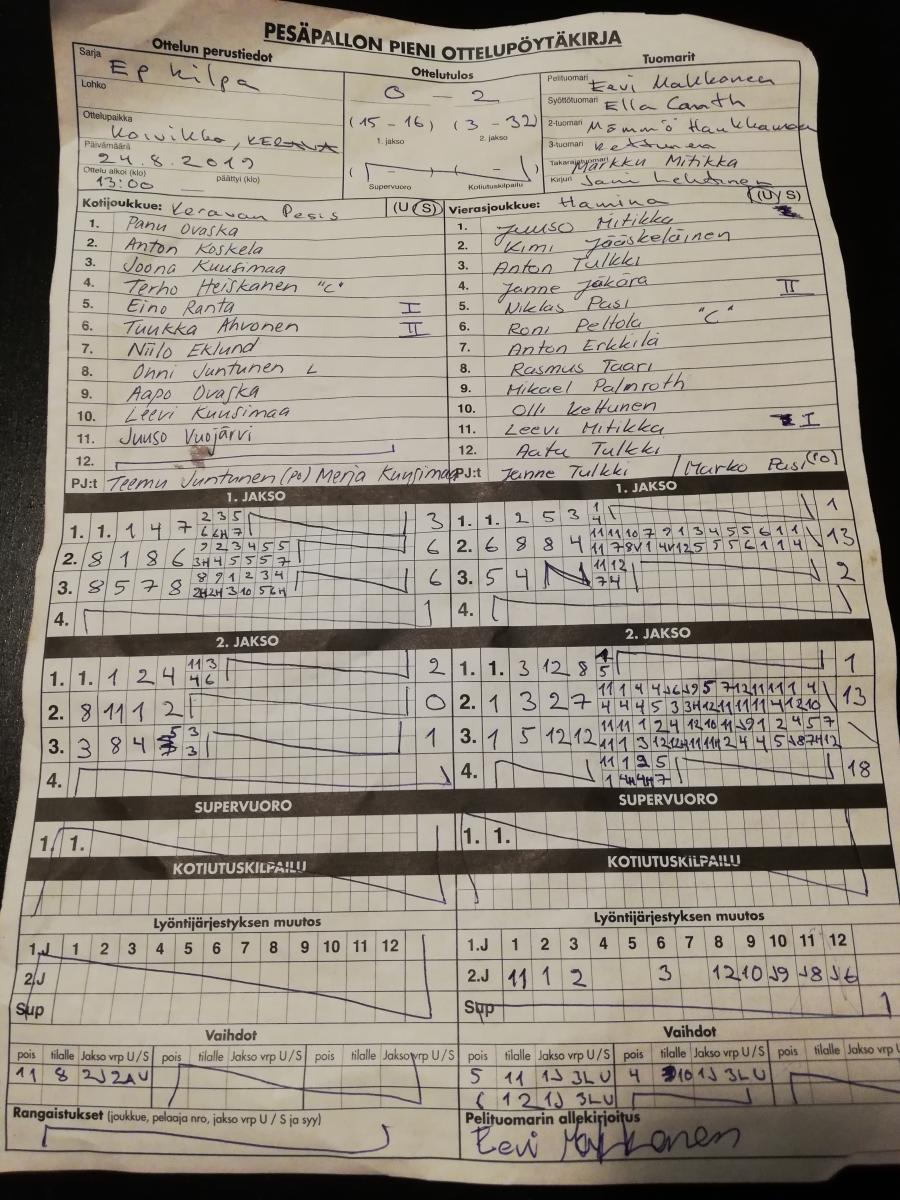 PESÄPALLON PIENI OTTELUPÖYTÄKIRJA
Ottelun perustiedot
Ottelutulos
Tuomarit
Sarja
EP Kilpa
Lohko
Ottelupaikka
Koivikko, KERAVA
Päivämäärä
24.8.2019
Ottelu alkoi (klo) päättyi (klo)
13:00
0 - 2
(15 - 16) (3 - 32)
1. jakso 2. jakso
( - ) ( - )
Supervuoro Kotiutuskilpailu
Pelituomari Eevi Makkonen
Syöttötuomari Ella
2-tuomari Mömmö
3-tuomari Kettunen
Takarajatuomari Markku Mitikka
Kirjuri Jani Lehtinen
Kotijoukkue: Keravan Pesis (U/S)
1. Panu Ovaska
2. Anton Koskela
3. Joona Kuusimaa
4. Terho Heiskanen "C"
5. Eino Ranta I
6. Tuukka Ahvonen II
7. Niilo Eklund
8. Onni Juntunen L
9. Aapo Ovaska
10. Leevi Kuusimaa
11. Juuso Vuojärvi
12.
PJ:t Teemu Juntunen (PO) Merja Kuusimaa
Vierasjoukkue: Hamina (U/S)
1. Juuso Mitikka
2. Kimi Jääskeläinen
3. Anton Tulkki
4. Janne Jäkärä II
5. Niklas Pasi
6. Roni Peltola "C"
7. Anton Erkkilä
8. Rasmus Taari
9. Mikael Palmroth
10. Olli Kettunen
11. Leevi Mitikka I
12. Aatu Tulkki
PJ:t Janne Tulkki / Marko Pasi (PO)
1. JAKSO
1. 1. 1 4 7 2 3 5 3
6 6H 7
2. 8 1 8 6 9 2 3 4 5 5 6
3H 4 5 5 5 7
3. 8 5 7 8 8 9 1 2 3 4 6
2H 2H 3 10 5 6H
4. 1
1. JAKSO
1. 1. 2 5 3 1 1
4
2. 6 8 8 4 11 11 10 7 9 1 3 4 5 5 6 1 1 13
3. 5 4 11 12 2
7 4
4.
2. JAKSO
1. 1. 1 2 4 11 3 2
4 6
2. 8 11 1 2 0
3. 3 8 4 3 1
3
4.
2. JAKSO
1. 1. 3 12 8 1
5
2. 1 3 2 7 13
3. 1 5 12 12
4. 11 1 2 5 18
1 4H 4H 7
SUPERVUORO
1. 1.
KOTIUTUSKILPAILU
SUPERVUORO
1. 1.
KOTIUTUSKILPAILU
Lyöntijärjestyksen muutos
1.J 1 2 3 4 5 6 7 8 9 10 11 12
2.J
Sup
Lyöntijärjestyksen muutos
1.J 1 2 3 4 5 6 7 8 9 10 11 12
2.J 11 1 2 3 12 10 J9 J8 J6
Sup
Vaihdot
pois tilalle Jakso vrp U/S pois tilalle Jakso vrp U/S pois tilalle Jakso vrp U/S
11 8 2J 2A U
Vaihdot
pois tilalle Jakso vrp U/S pois tilalle Jakso vrp U/S pois tilalle Jakso vrp U
5 11 1J 3L U 4 10 1J 3L U
12 1J 3L U
Rangaistukset (joukkue, pelaaja nro, jakso vrp U / S ja syy)
Pelituomarin allekirjoitus
Eevi Makkonen